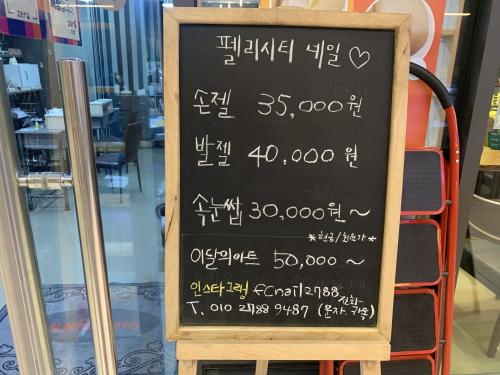 펠리시티 네일 ♡
손젤 35,000원
발젤 40,000원
속눈썹 30,000원~
*현금/회원가*
이달의아트 50,000~
인스타그램 fcnail2788
T. 010 2788 9487 (문자. 전화. 카톡)